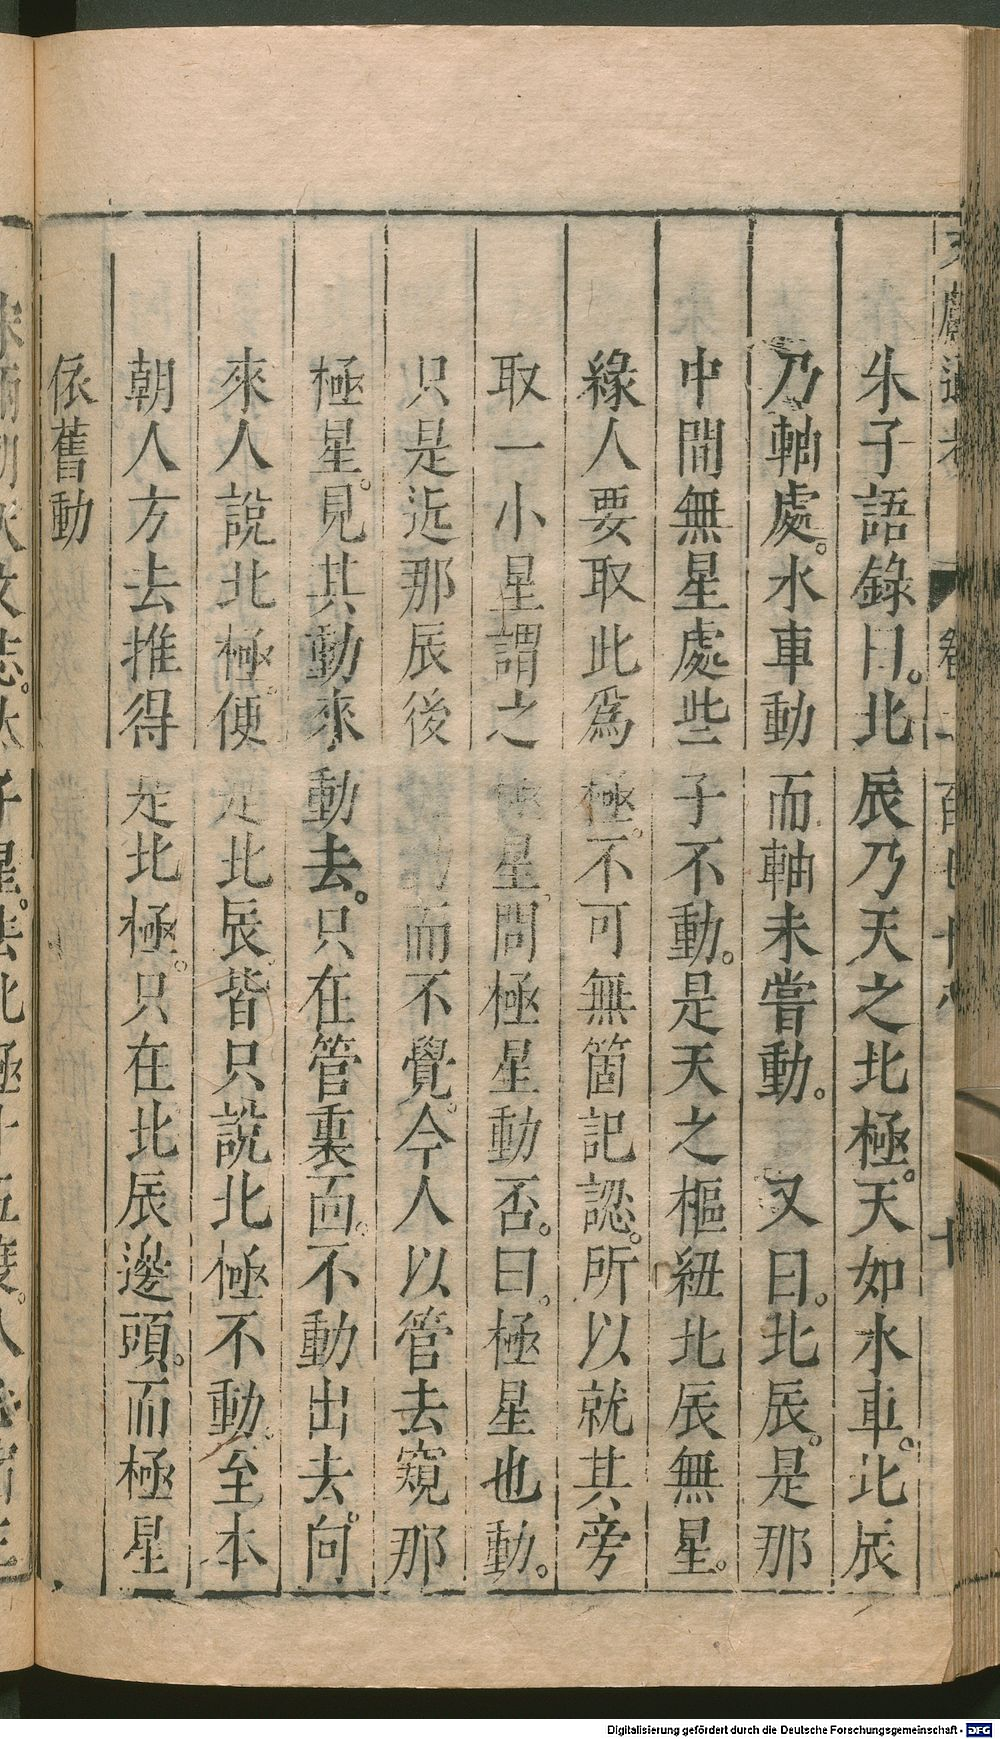 朱子語錄曰。北辰乃天之北極。天如水車。北辰
乃軸處。水車動而軸未嘗動。 又曰。北辰。是那
中間無星處些子不動。是天之樞紐北辰無星。
緣人要取此爲極。不可無箇記認。所以就其旁
取一小星謂之極星。問極星動否。曰。極星也動。
只是近那辰後動而不覺。今人以管去窺那
極星。見其動來動去。只在管裏面。不動出去。向
來人說北極。便是北辰。皆只說北極不動。至本
朝人方去推得是北極。只在北辰邊頭。而極星
依舊動
Digitalisierung gefördert durch die Deutsche Forschungsgemeinschaft - DFG